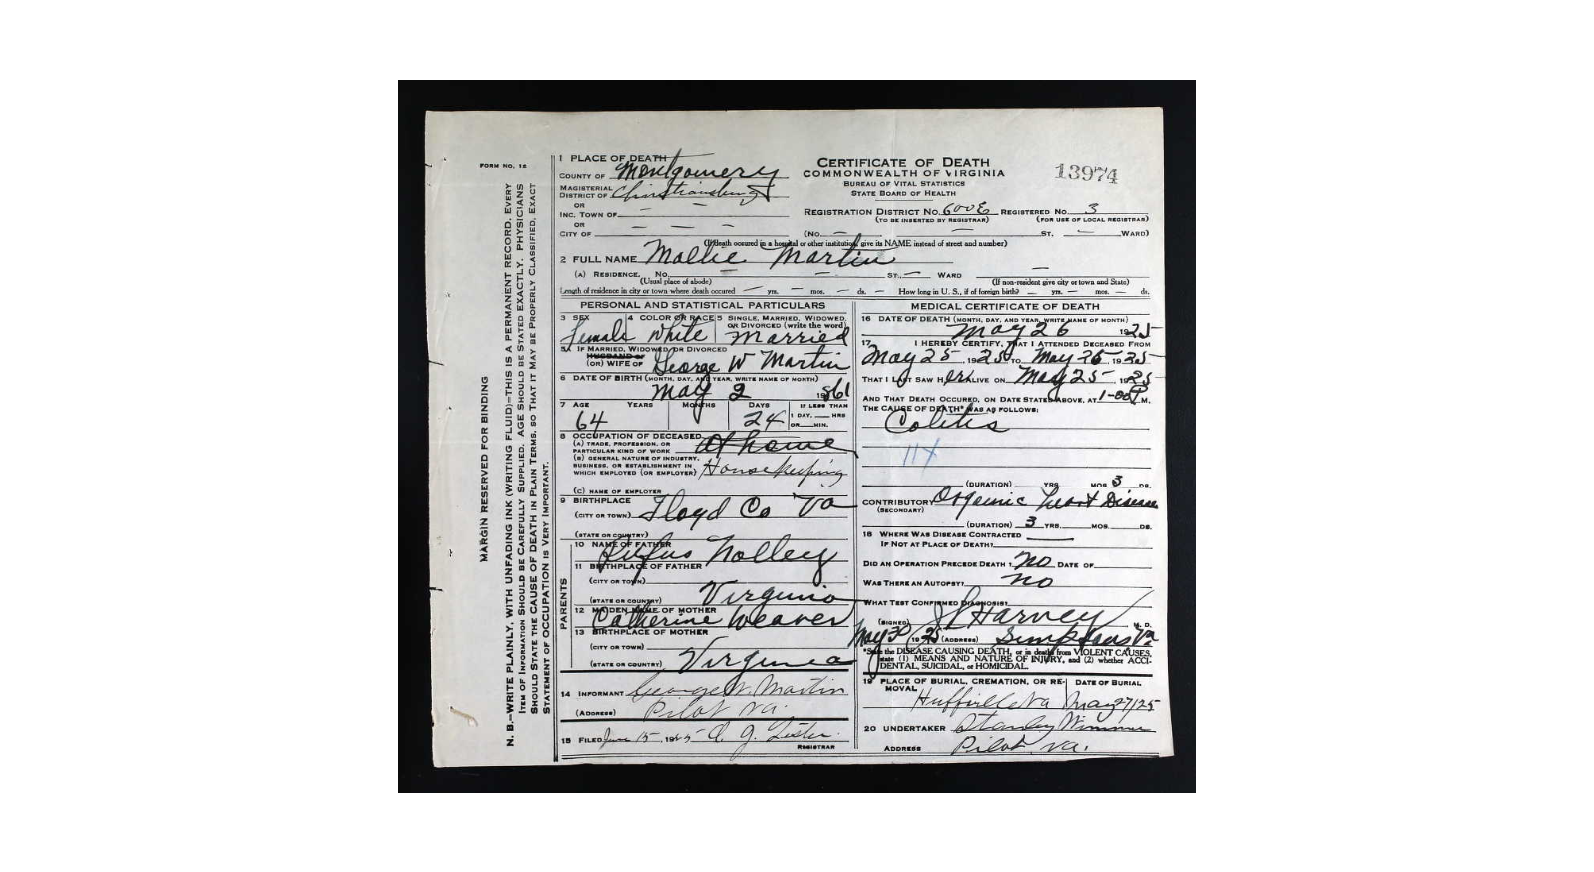 FORM NO. 12
MARGIN RESERVED FOR BINDING
N. B.—WRITE PLAINLY, WITH UNFADING INK (WRITING FLUID)—THIS IS A PERMANENT RECORD. EVERY
ITEM OF INFORMATION SHOULD BE CAREFULLY SUPPLIED. AGE SHOULD BE STATED EXACTLY. PHYSICIANS
SHOULD STATE THE CAUSE OF DEATH IN PLAIN TERMS, SO THAT IT MAY BE PROPERLY CLASSIFIED. EXACT
STATEMENT OF OCCUPATION IS VERY IMPORTANT.
1 PLACE OF DEATH
COUNTY OF Montgomery
MAGISTERIAL
DISTRICT OF Christiansburg
OR
INC. TOWN OF
OR
CITY OF
CERTIFICATE OF DEATH
COMMONWEALTH OF VIRGINIA
BUREAU OF VITAL STATISTICS
STATE BOARD OF HEALTH
13974
REGISTRATION DISTRICT NO. 600E REGISTERED NO. 3
(TO BE INSERTED BY REGISTRAR) (FOR USE OF LOCAL REGISTRAR)
(No. — — ST. — WARD)
(If death occured in a hospital or other institution, give its NAME instead of street and number)
2 FULL NAME Mollie Martin
(A) RESIDENCE. No. — — ST. — WARD —
(Usual place of abode) (If non-resident give city or town and State)
Length of residence in city or town where death occured — yrs. — mos. — ds. How long in U. S., if of foreign birth? — yrs. — mos. — ds.
PERSONAL AND STATISTICAL PARTICULARS
3 SEX 4 COLOR OR RACE 5 SINGLE, MARRIED, WIDOWED,
OR DIVORCED (write the word)
Female White Married
5A IF MARRIED, WIDOWED, OR DIVORCED
HUSBAND OF
(OR) WIFE OF George W Martin
6 DATE OF BIRTH (MONTH, DAY, AND YEAR, WRITE NAME OF MONTH)
May 2 1861
7 AGE YEARS MONTHS DAYS IF LESS THAN
1 DAY, HRS
OR MIN.
64 24
8 OCCUPATION OF DECEASED
(A) TRADE, PROFESSION, OR
PARTICULAR KIND OF WORK At home
(B) GENERAL NATURE OF INDUSTRY,
BUSINESS, OR ESTABLISHMENT IN
WHICH EMPLOYED (OR EMPLOYER) Housekeeping
(C) NAME OF EMPLOYER
9 BIRTHPLACE
(CITY OR TOWN) Floyd Co Va
(STATE OR COUNTRY)
PARENTS
10 NAME OF FATHER
Rufus Nolley
11 BIRTHPLACE OF FATHER
(CITY OR TOWN)
(STATE OR COUNTRY) Virginia
12 MAIDEN NAME OF MOTHER
Catherine Weaver
13 BIRTHPLACE OF MOTHER
(CITY OR TOWN)
(STATE OR COUNTRY) Virginia
14 INFORMANT George W. Martin
(ADDRESS) Pilot Va.
15 FILED June 15, 1925 A. G. Lester
REGISTRAR
MEDICAL CERTIFICATE OF DEATH
16 DATE OF DEATH (MONTH, DAY, AND YEAR, WRITE NAME OF MONTH)
May 26 1925
17 I HEREBY CERTIFY, THAT I ATTENDED DECEASED FROM
May 25, 1925 TO May 26, 1925
THAT I LAST SAW Her ALIVE ON May 25 1925
AND THAT DEATH OCCURED, ON DATE STATED ABOVE, AT 1-00 M.
THE CAUSE OF DEATH* WAS AS FOLLOWS:
Colitis
114
(DURATION) YRS. MOS 3 DS.
CONTRIBUTORY Organic heart Disease
(SECONDARY)
(DURATION) 3 YRS. MOS. DS.
18 WHERE WAS DISEASE CONTRACTED
IF NOT AT PLACE OF DEATH?
DID AN OPERATION PRECEDE DEATH? No DATE OF
WAS THERE AN AUTOPSY? No
WHAT TEST CONFIRMED DIAGNOSIS?
(SIGNED) Harvey M. D.
May 30 1925 (ADDRESS) Simpsons Va
*State the DISEASE CAUSING DEATH, or in deaths from VIOLENT CAUSES,
state (1) MEANS AND NATURE OF INJURY, and (2) whether ACCI-
DENTAL, SUICIDAL, or HOMICIDAL.
19 PLACE OF BURIAL, CREMATION, OR RE- DATE OF BURIAL
MOVAL
Huffville Va May 27/25
20 UNDERTAKER Stanley Wimmer
ADDRESS Pilot Va.